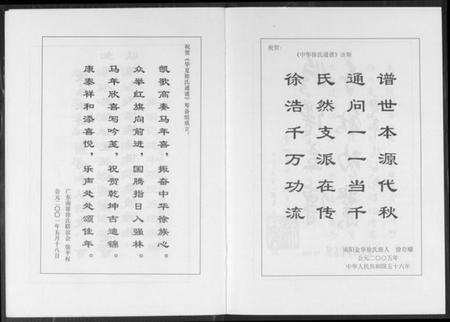 祝贺《华夏徐氏通谱》筹备组成立。
凯歌高奏马年喜，振奋中华徐族心。
众举红旗向前进，国腾指日入强林。
马年欣喜写吟笺，祝贺乾坤吉迪锦。
康泰祥和添喜悦，乐声处处颂佳年。
广东南雄徐氏联谊会 徐平权
公元二〇〇一年五月十八日
祝贺：
《中华徐氏通谱》出版
徐氏通谱
浩然问世
千支一本
万派一源
功在当代
流传千秋
金华徐氏族人 徐
公元二〇〇五年
中华人民共和国五十六年